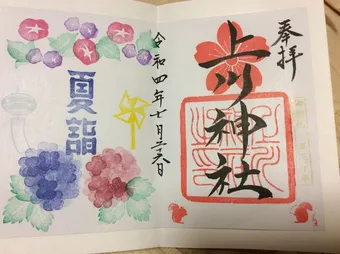 奉拝
上川神社
令和四年七月二十六日
夏詣